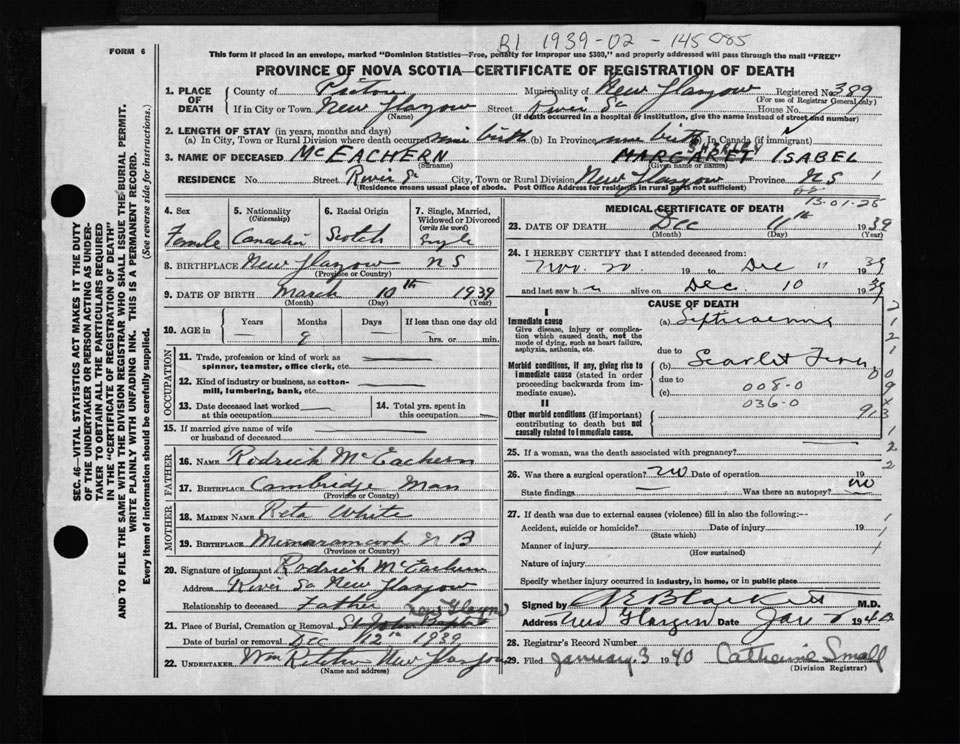 B1 1939-02-145085
FORM 6
This form if placed in an envelope, marked "Dominion Statistics—Free, penalty for improper use $300," and properly addressed will pass through the mail "FREE"
PROVINCE OF NOVA SCOTIA—CERTIFICATE OF REGISTRATION OF DEATH
1. PLACE OF DEATH County of Pictou Municipality of New Glasgow Registered No. 389
(For use of Registrar General only)
If in City or Town New Glasgow Street River St House No.
(Name) (If death occurred in a hospital or institution, give the name instead of street and number)
2. LENGTH OF STAY (in years, months and days)
(a) In City, Town or Rural Division where death occurred since birth (b) In Province since birth In Canada (if immigrant)
3. NAME OF DECEASED McEACHERN SHIRLEY MARGARET ISABEL
(Surname) (Given name or names)
RESIDENCE No. Street River St City, Town or Rural Division New Glasgow Province NS 1
(Residence means usual place of abode. Post Office Address for residents in rural parts not sufficient)
13-01-25
4. Sex Female
5. Nationality (Citizenship) Canadian
6. Racial Origin Scotch
7. Single, Married, Widowed or Divorced (write the word) Single
8. BIRTHPLACE New Glasgow NS
(Province or Country)
9. DATE OF BIRTH March 10th 1939
(Month) (Day) (Year)
10. AGE in Years Months Days If less than one day old
— 9 — hrs. or min.
OCCUPATION
11. Trade, profession or kind of work as spinner, teamster, office clerk, etc.
12. Kind of industry or business, as cotton-mill, lumbering, bank, etc.
13. Date deceased last worked at this occupation
14. Total yrs. spent in this occupation
15. If married give name of wife or husband of deceased
FATHER
16. NAME Rodrick McEachern
17. BIRTHPLACE Cambridge Mass
(Province or Country)
MOTHER
18. MAIDEN NAME Reta White
19. BIRTHPLACE N B
(Province or Country)
20. Signature of informant Rodrick McEachern
Address River St New Glasgow
Relationship to deceased Father
New Glasgow
21. Place of Burial, Cremation or Removal St John Baptist
Date of burial or removal Dec 12th 1939
22. UNDERTAKER Wm New Glasgow
(Name and address)
MEDICAL CERTIFICATE OF DEATH
23. DATE OF DEATH Dec 11th 1939
(Month) (Day) (Year)
24. I HEREBY CERTIFY that I attended deceased from:
Nov. 20 19 to Dec 11 1939
and last saw h alive on Dec. 10 1939
CAUSE OF DEATH
I
Immediate cause
Give disease, injury or complication which caused death, not the mode of dying, such as heart failure, asphyxia, asthenia, etc.
(a) Septicaemia
due to
Morbid conditions, if any, giving rise to immediate cause (stated in order proceeding backwards from immediate cause).
(b) Scarlet Fever
due to
(c) 008-0
036-0
II
Other morbid conditions (if important) contributing to death but not causally related to immediate cause.
25. If a woman, was the death associated with pregnancy?
26. Was there a surgical operation? No Date of operation 19
State findings Was there an autopsy? no
27. If death was due to external causes (violence) fill in also the following:—
Accident, suicide or homicide? Date of injury 19
(State which)
Manner of injury
(How sustained)
Nature of injury
Specify whether injury occurred in industry, in home, or in public place
Signed by M.D.
Address New Glasgow Date Jan 1940
28. Registrar's Record Number
29. Filed January 3 1940 Catherine Small
(Division Registrar)
SEC. 46—VITAL STATISTICS ACT MAKES IT THE DUTY
OF THE UNDERTAKER OR PERSON ACTING AS UNDER-
TAKER TO OBTAIN ALL THE PARTICULARS REQUIRED
IN THE "CERTIFICATE OF REGISTRATION OF DEATH"
AND TO FILE THE SAME WITH THE DIVISION REGISTRAR WHO SHALL ISSUE THE BURIAL PERMIT.
WRITE PLAINLY WITH UNFADING INK. THIS IS A PERMANENT RECORD.
Every item of information should be carefully supplied. (See reverse side for instructions.)